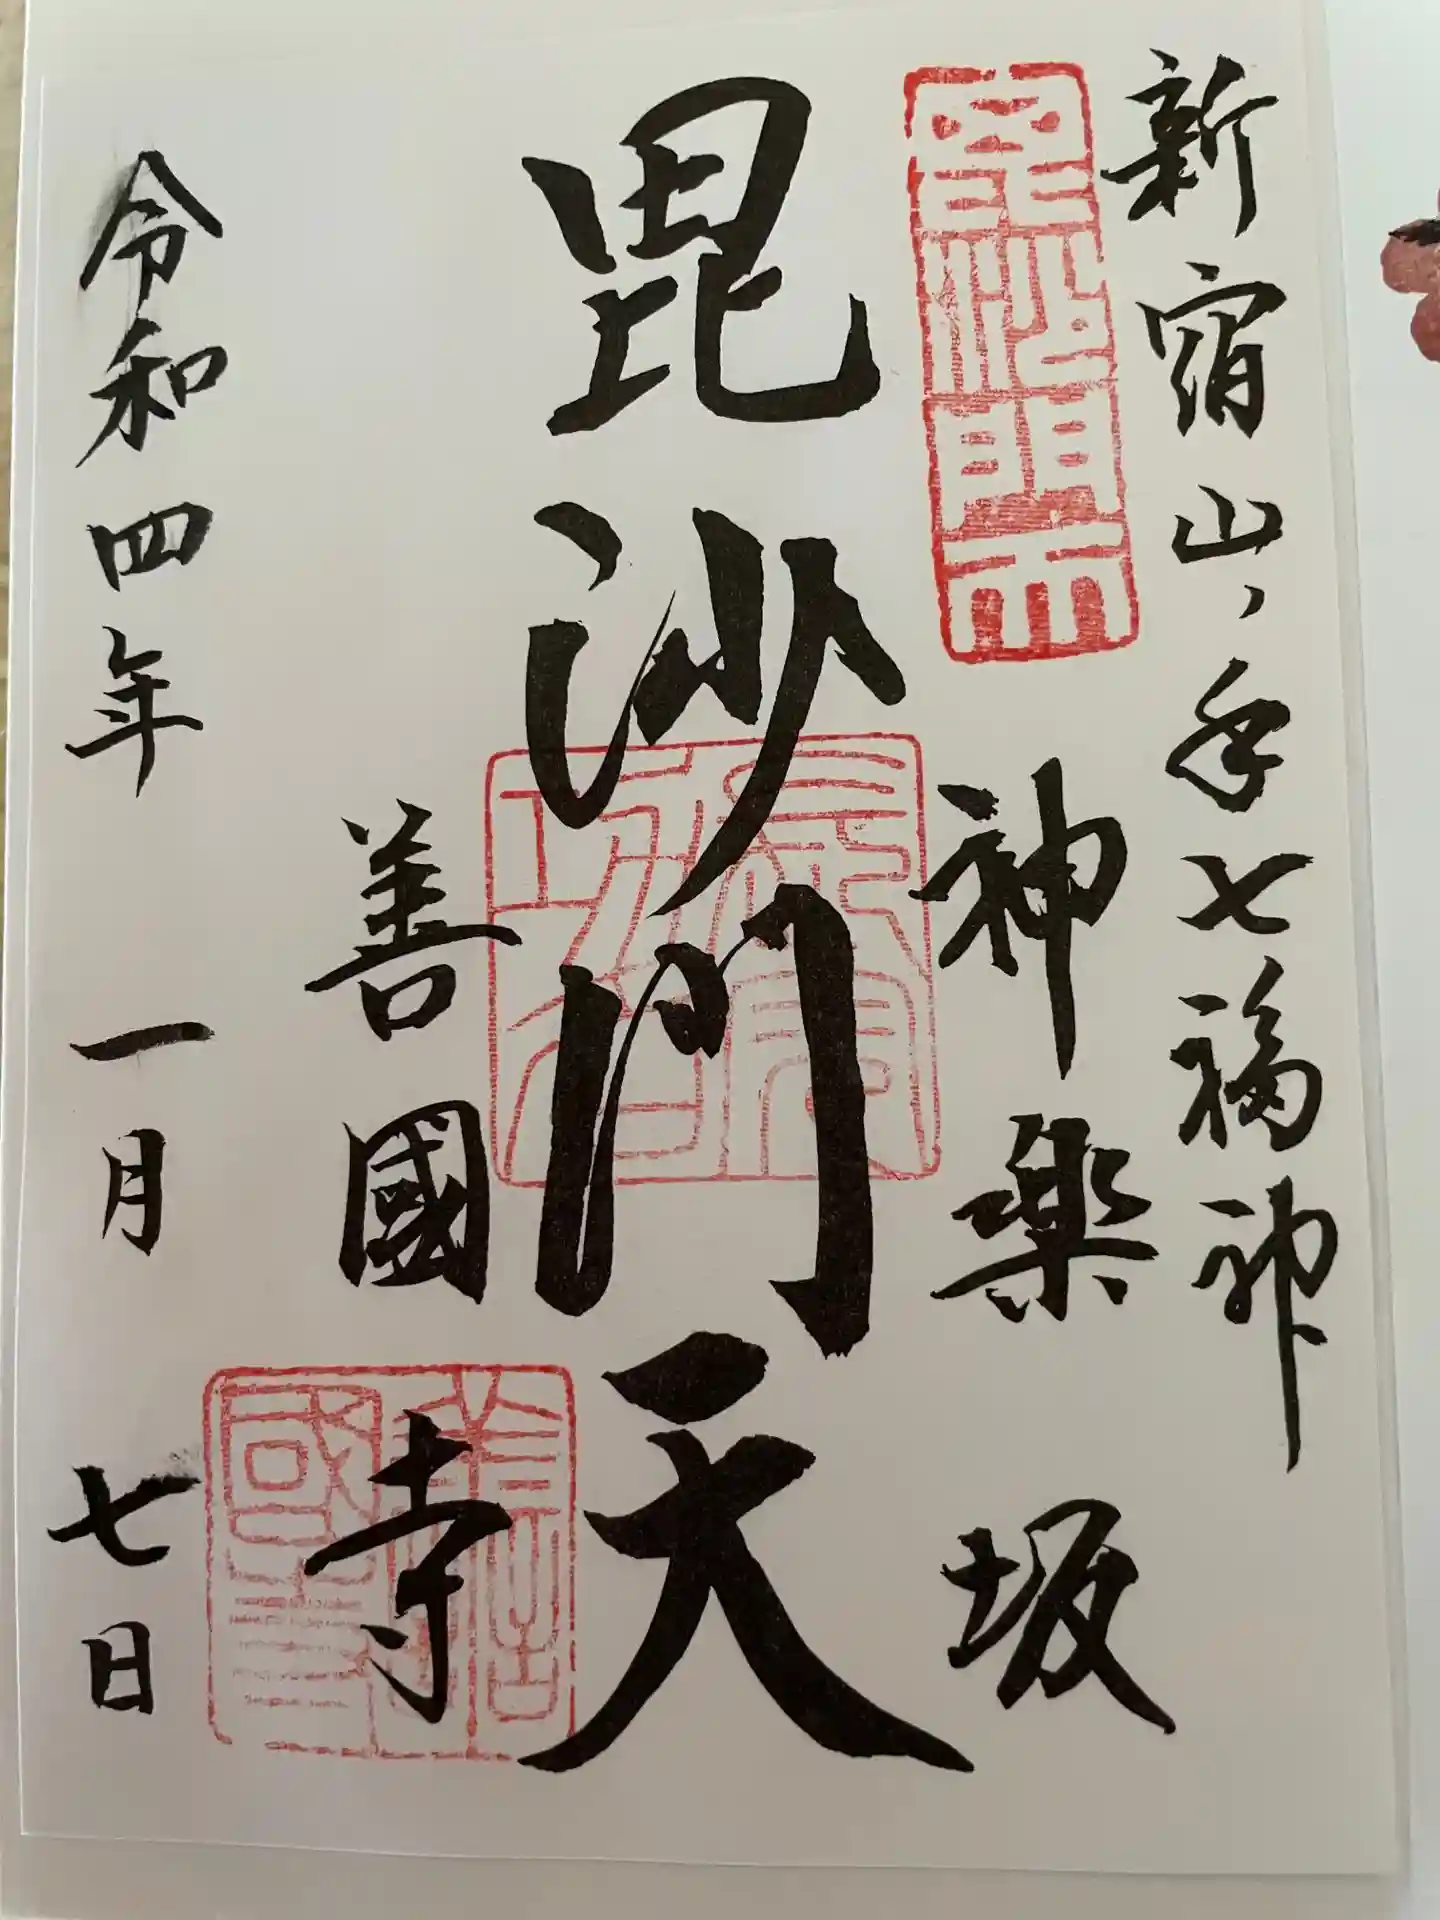 新宿山ノ手七福神
毘沙門天
神楽坂
毘沙門天
善國寺
令和四年一月七日